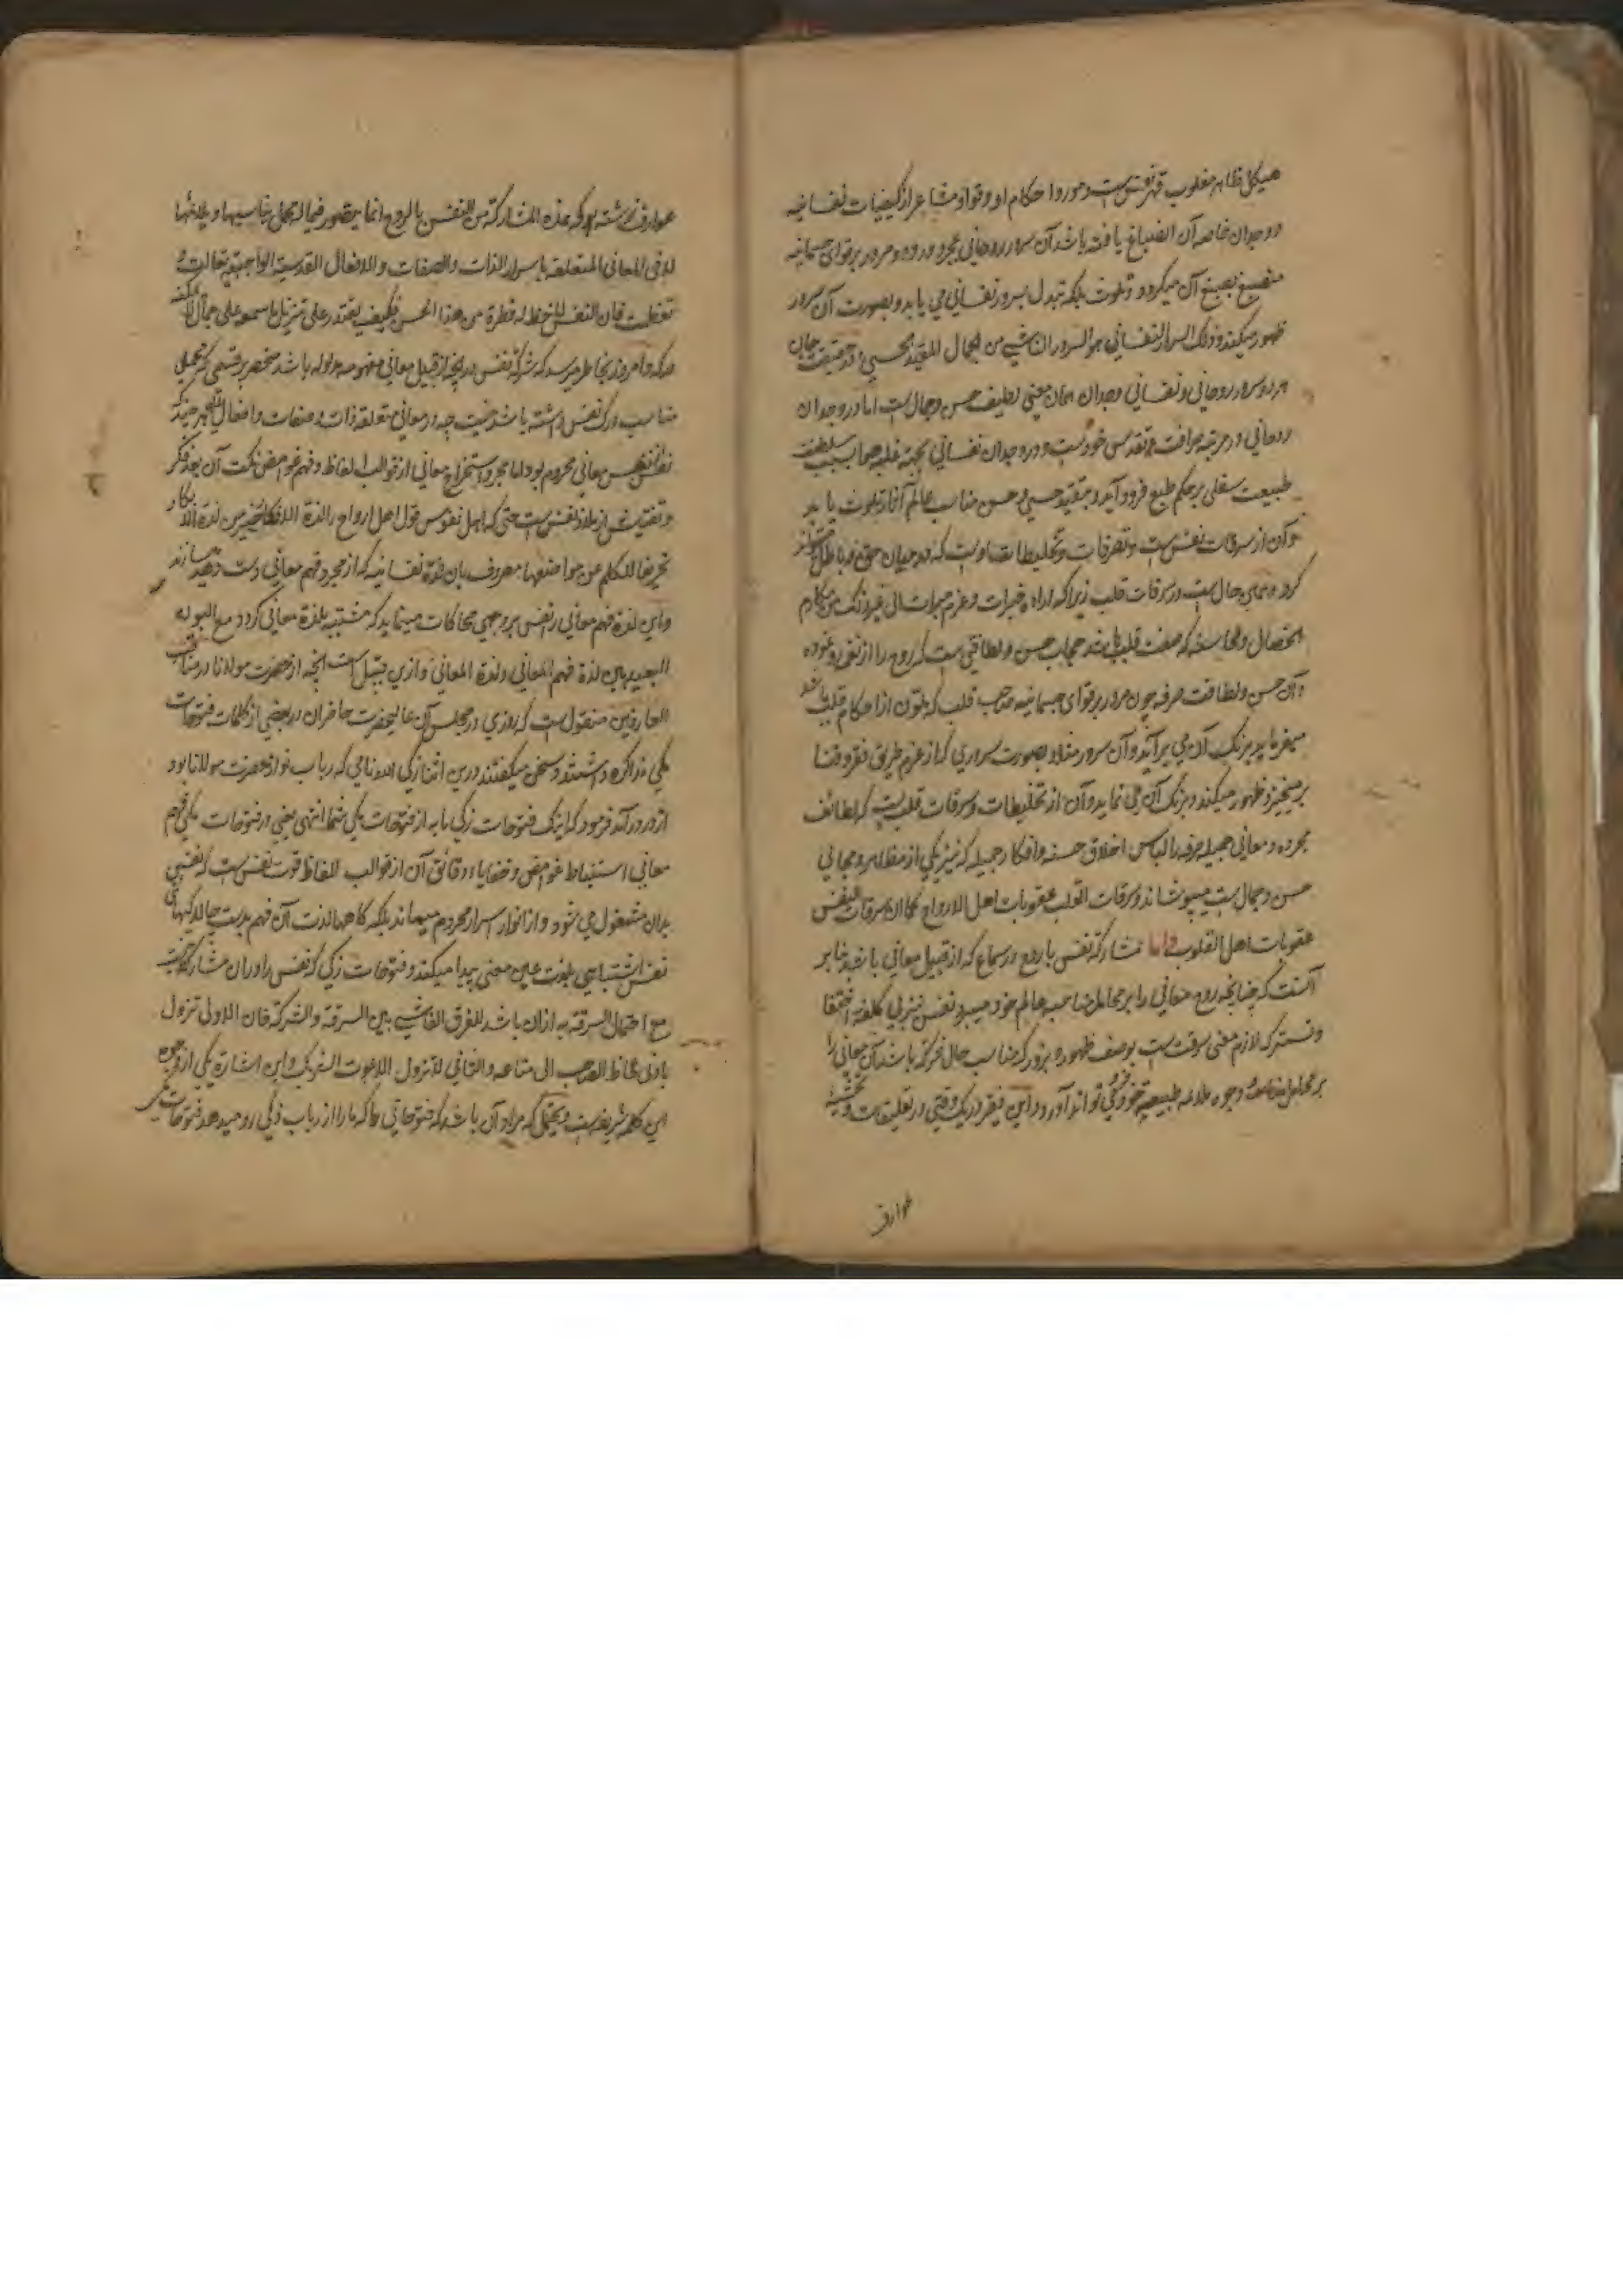 هیکل ظاهر مغلوب قهر نفس است و مورد احکام او و قوا و مشاعر از کیفیات نفسانیه
و وجدان خاصه آن انصباغ یافته باشد آن سرور روحانی بمجرد ورود و مرور بر قوای جسمانیه
منصبغ بصبغ آن میگردد و تلوث بلکه تبدل بسرور نفسانی می یابد و بصورت آن سرور
ظهور میکند و ذلک السرور النفسانی هو السرور الناشی من الجمال المقید الحسی در حقیقت
هر دو سرور روحانی و نفسانی وجدان همان معنی لطیف حسن و جمال است اما در وجدان
روحانی در مرتبه صرافت و تقدس خود است و در وجدان نفسانی بجهة غلبه
طبیعت سفلی بر حکم طبع فرود آید و بقید حسی و حسن مناسب عالم آثار تلوث یابد
و آن از سرقات نفس است و تصرفات و تخلیطات اوست که در میان حق و باطل
کرد و همین حال است در سرقات قلب زیرا که اراده خیرات و عزم مبرات الی غیر ذلک من مکارم
الخصال و المحاسن که صفت قلب باشد حجاب حسن و لطافتی است که روح را از
و آن حسن و لطافت صرفه چون مرور بر قوای جسمانیه صاحب قلب که متلون از احکام قلب باشد
میفرماید برنگ آن می برآید و آن سرور مثلا بصورت سروری که از عزم طریق فقر و فنا
برمیخیزد ظهور میکند و برنگ آن می نماید و آن از تخلیطات و سرقات قلب است که لطائف
مجرده و معانی جمیله صرفه را لباس اخلاق حسنه و افکار جمیله که نیز یکی از مظاهر و مجالی
حسن و جمال است میپوشاند و سرقات القلب عقوبات اهل الارواح کما ان سرقات النفس
عقوبات اهل القلوب و اما مشارکة نفس با روح در سماع که از قبیل معانی باشد بنابر
آنست که چنانچه روح معانی را بر محامل مناسبه عالم خود میبرد نفس نیز بی کلفة اختفا
و تستر که لازم معنی سرقت است بوصف ظهور و بروز که مناسب حال شرکة باشد آن معانی را
بر محامل مناسبه وجوه ملائمه طبیعیه خود می تواند آورد و این فقیر در یک وقتی در تعلیقات و تحشیه
عوارف
عوارف نوشته بود که هذه المشارکة من النفس بالروح انما یتصور فیما له محمل یناسبها و یلائمها
لا فی المعانی المتعلقة باسرار الذات و الصفات و الافعال القدسیة الواجبیة تعالت و
تعظمت فان النفس لا حظ له قطرة من هذا الحسن فکیف یقتدر علی تنزیل ما سمعه علی
مدرکه و امروز بخاطر میرسد که شرکة نفس در آنچه از قبیل معانی مفهومه مدلوله باشد منحصر بر قسمی که محملی
مناسب درک نفس داشته باشد نیست چه در معانی متعلقه ذات و صفات و افعال الهی هر چند که
نفس از نفس معانی محروم بود اما مجرد استخراج معانی از قوالب الفاظ و فهم غوامض نکت آن بعد فکر
و تفتیش از ملاذ نفس است حتی که اهل نفوس قول اهل ارواح را لذة الافکار خیر من لذة الابکار
تحریفا للکلم عن مواضعها مصروف بان لذة نفسانیه که از مجرد فهم معانی دست دهد
و این لذة فهم معانی را نفس بر وجهی محاکات مینماید که مشتبه بلذة معانی گردد مع البون
البعید بین لذة فهم المعانی و لذة المعانی و ازین قبیل است آنچه از حضرت مولانا در مناقب
العارفین منقول است که روزی در مجلس آن عالیحضرت حاضران در بعضی از کلمات فتوحات
مکی مذاکره داشتند و سخن میگفتند درین اثنا زکی الدین نامی که رباب نواز حضرت مولانا بود
از در درآمد فرمود که اینک فتوحات زکی ما به از فتوحات مکی شما انتهی یعنی در فتوحات مکی فهم
معانی استنباط غوامض و خفایا و دقائق آن از قوالب الفاظ قوت نفس است که نفسی
بدان مشغول می شود و از انوار اسرار محروم میماند بلکه گاهی لذت آن فهم بدست چالاکیهای
نفس اشتباهی بلذت عین معنی پیدا میکند و فتوحات زکی که نفس را در آن مشارکت نیست
مع احتمال السرقة به از آن باشد للفرق الفاشی بین السرقة و الشرکة فان الاولی تزول
بادنی لحاظ الصاحب الی متاعه و الثانی لا تزول الا بموت الشریک و این اشارة یکی از وجوه
این کلمه شریفه است و یحتمل که مراد آن باشد که فتوحاتی که ما را از رباب زکی رو میدهد فتوحات